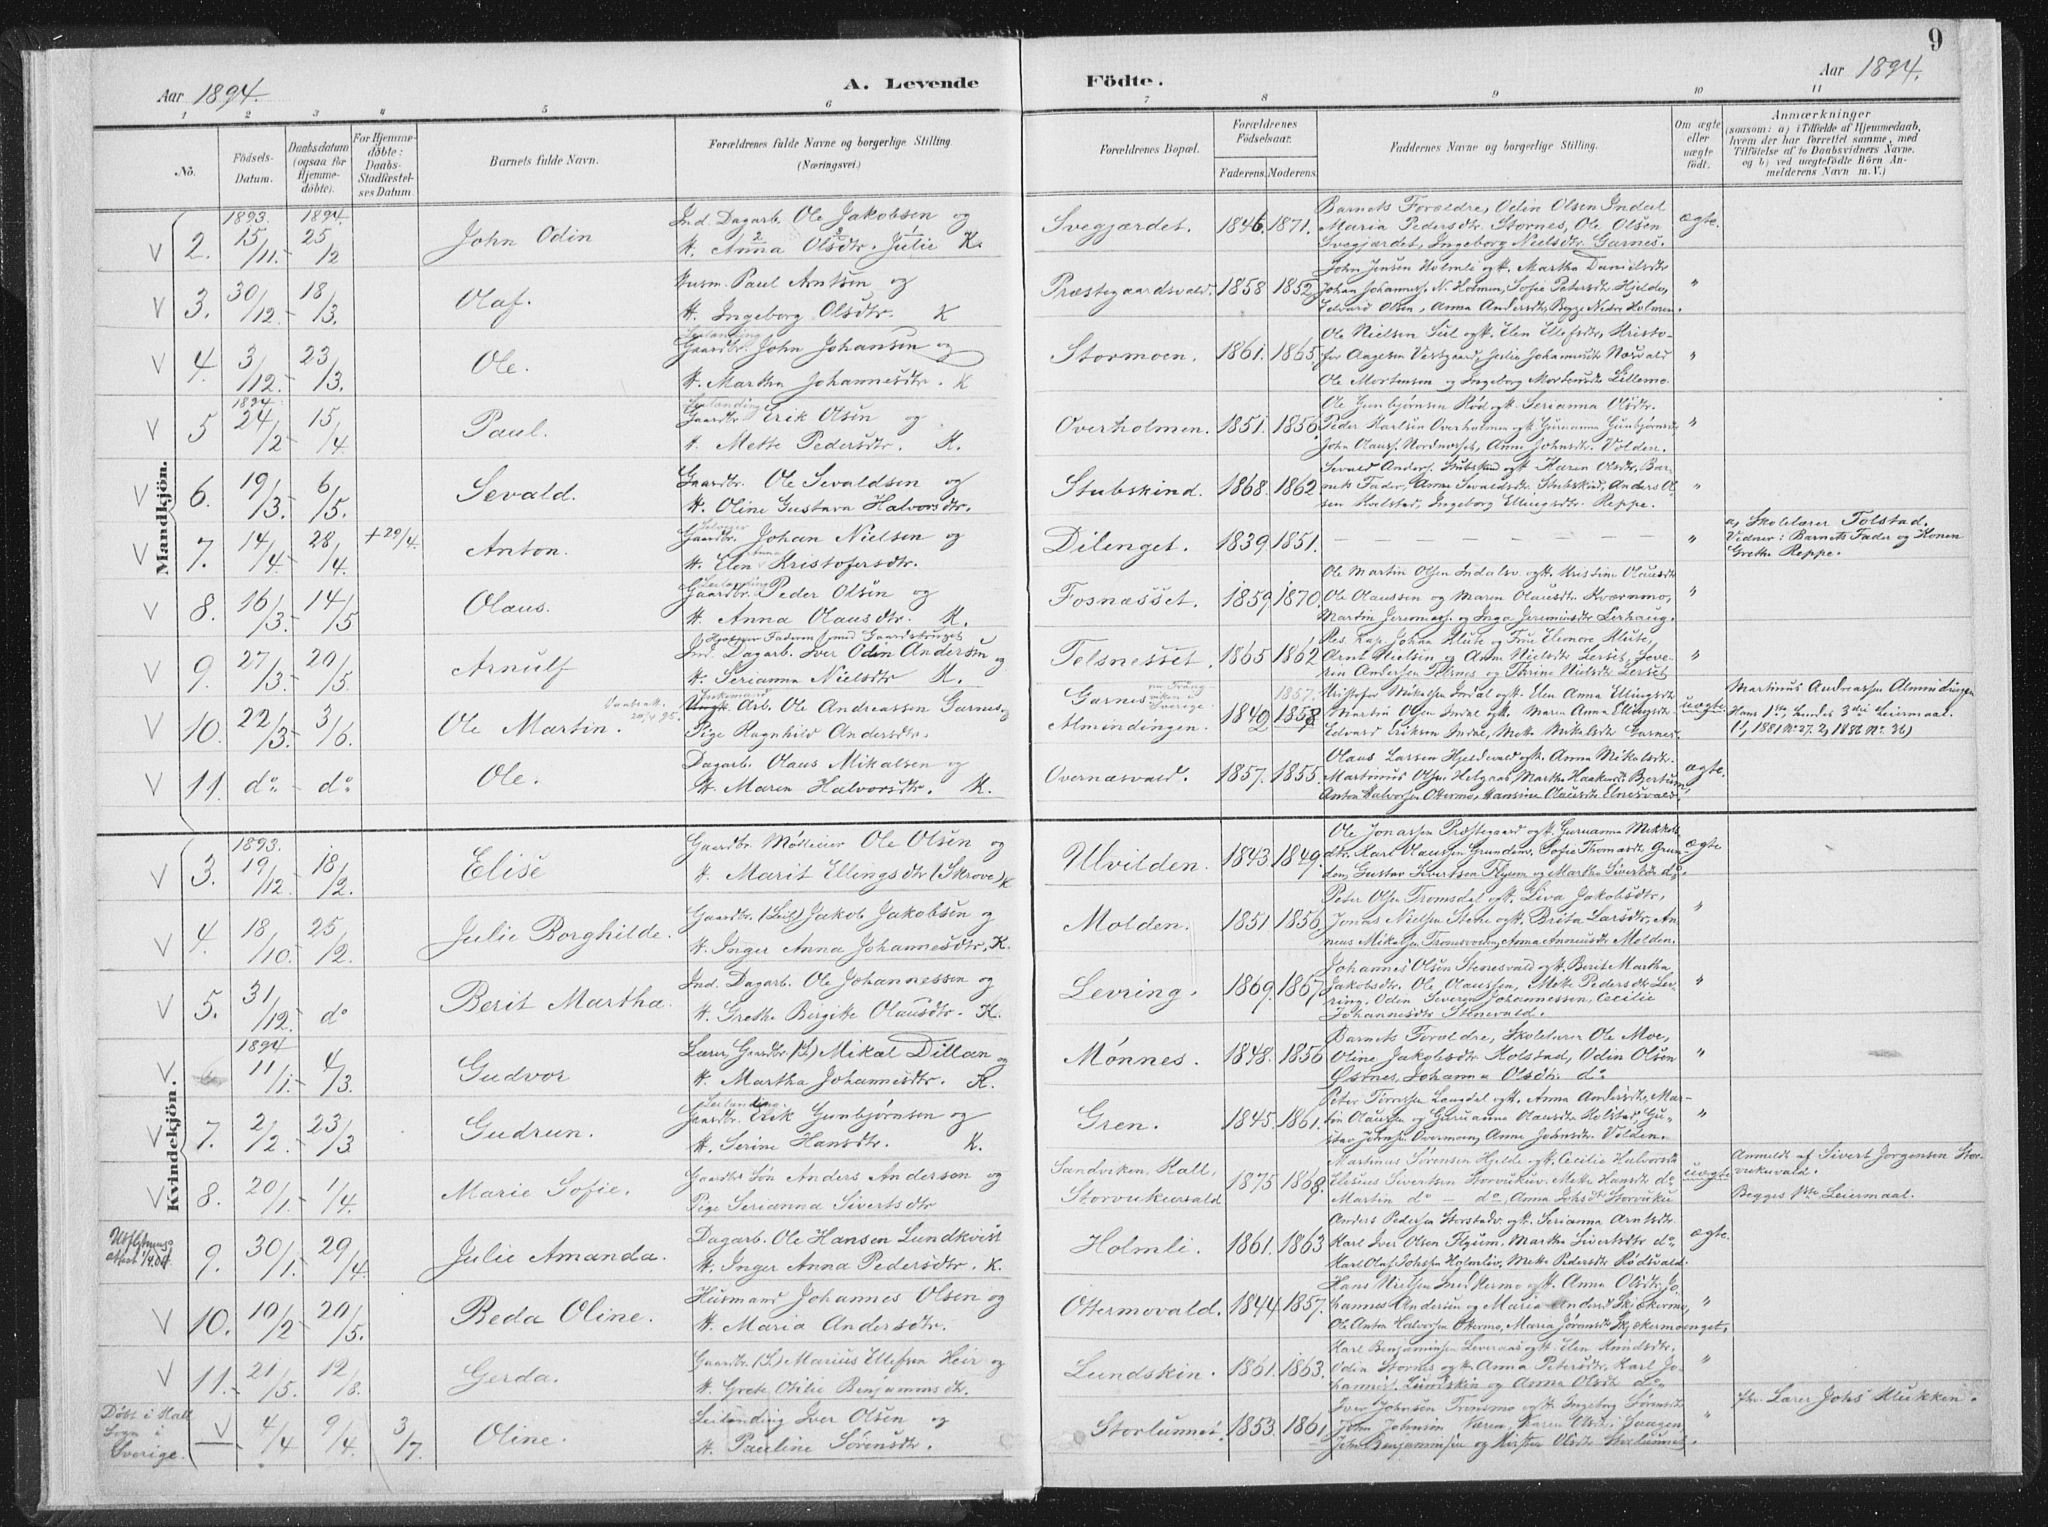 9
Aar 1894.
A. Levende
Födte.
Aar 1894.
1 2 3 4 5 6 7 8 9 10 11
No.
Födsels-
Datum.
Daabsdatum
(ogsaa for
Hjemme-
döbte).
For Hjemme-
döbte:
Daabs-
Stadfæstel-
ses Datum
Barnets fulde Navn.
Forældrenes fulde Navne og borgerlige Stilling.
(Næringsvei.)
Forældrenes Bopæl.
Forældrenes
Födselsaar.
Faderens. Moderens.
Faddernes Navne og borgerlige Stilling.
Om ægte
eller
uægte
födt.
Anmærkninger
(saasom: a) i Tilfælde af Hjemmedaab,
hvem der har forrettet samme, med
Tilföielse af to Daabsvidners Navne,
og b) ved uægtefödte Börn An-
melderens Navn m. V.)
Mandkjön.
1893. 1894.
V 2. 15/11. 25/2 John Odin
Ind. Dagarb. Ole Jakobsen og
H. Anna Olsdtr. Julie K.
Svegjærdet. 1846. 1871.
Barnets Forældre, Odin Olsen Indal
Maria Pedersdtr. Stornes, Ole Olsen
Svegjærdet, Ingeborg Nielsdtr. Garnes.
ægte.
V 3. 30/12. 18/3. Olaf.
Husm. Paul Arntsen og
H. Ingeborg Olsdtr. K
Præstegaardsvald. 1858 1852
John Jensen Holmli og H. Martha Danielsdtr
Johan Johanness. N. Holmen, Sofie Petersdtr Hjelde,
Edvard Olsen, Anna Andersdtr, Begge Nedre Holmen.
"
V 4. 3/12. 23/3. Ole.
Leilending
Gaardbr. John Johansen og
H. Martha Johannesdtr. K
Stormoen. 1861. 1865
Ole Nielsen Sul og H. Elen Ellefsdtr, Kristo-
fer Aagesen Vestgaard, Julie Johannesdtr Næsvald
Ole Mortensen og Ingeborg Mortensdtr Lillemo.
"
1894
V 5 24/2 15/4 Paul.
Leilending
Gaardbr. Erik Olsen og
H. Mette Pedersdtr. K.
Overholmen. 1851. 1856
Ole Gunbjørnsen Rød og H. Serianna Olsdtr.
Peder Karlsen Overholmen og H. Guruanna Gunbjørnsdtr
John Olauss. Nordnæsset, Anne Johnsdtr. Volden.
"
V 6. 19/3. 6/5. Sevald.
Gaardbr. Ole Sevaldsen og
H. Oline Gustava Halvorsdtr.
Stubskind. 1868. 1862.
Sevald Anders. Stubskind og H. Karen Olsdtr, Bar-
nets Fader, Anne Sevaldsdtr Stubskind, Anders Ol-
sen Holstad, Ingeborg Ellingsdtr. Reppe.
"
V 7. 14/4. 28/4. +29/4. Anton.
Selveier
Gaardbr. Johan Nielsen og
Anna
H. Elen Kristofersdtr.
Dilenget. 1839. 1851.
"
a, Skolelærer Tolstad.
Vidner: Barnets Fader og Konen
Grethe Reppe.
V 8. 16/3. 14/5 Olaus.
Leilending
Gaardbr. Peder Olsen og
H. Anna Olausdtr. K.
Fosnæsset. 1859, 1870
Ole Martin Olsen Indalsv. og H. Kristine Olausdtr
Ole Olaussen og Maren Olausdtr Kværnmo,
Martin Jeremiass. og Inga Jeremiasdtr Lerhaug.
"
V 9. 27/3. 20/5. Arnulf
Hjælper Faderen med Gaardsbruget
Ind. Dagarb. Iver Odin Andersen og
H. Serianna Nielsdtr K.
Telsnesset. 1865 1862
Res. Kap. Johan Klute og Frue Elenore Klute,
Arnt Nielsen og Anne Nielsdtr Lerset, Seve-
rin Andersen Telsnes og Thrine Nielsdtr Lerset
"
V 10. 22/3. 3/6. Ole Martin.
Ungk. Arb. Ole Andreassen Garnes, og
Pige Ragnhild Andersdtr.
Garnes
Sverige.
Almindingen. 1849 1857. 1858
Kristofer Mikalsen Indal og H. Elen Anna Ellingsdtr
Martin Olsen Indal og H. Maren Anna Ellingsdtr
Edvard Eriksen Indal, Mette Mikalsdtr Garnes.
uægte.
Martinus Andreassen Almindingen
Hans 1ste, hendes 3die Leiermaal.
(1, 1881 No. 27. 2, 1886 No. 36)
V 11. do do Ole.
Dagarb. Olaus Mikalsen og
H. Maren Halvorsdtr. K.
Overnæsvald. 1857. 1855.
Olaus Larsen Hjeldevald og H. Anna Mikalsdtr.
Martinus Olsen Helgaas, Martha Haakensdtr Bertum,
Anton Halvorsen Ottermo, Hansine Olausdtr Elnesvald.
ægte.
Kvindekjön.
1893.
V 3. 19/12. 18/2. Elise
Gaardbr. Møllener Ole Olsen og
H. Marit Ellingsdtr (Skrove) K
Ulvilden. 1843 1849.
Ole Jonassen Præstegaard og H. Guruanna Mikkels-
dtr. Karl Olaussen Grunden, Sofie Thomasdtr Grun-
den, Gustav Sivertsen Flyum og Martha Sivertsdtr do.
ægte
V 4. 18/10. 25/2. Julie Borghilde.
Gaardbr. (Leil) Jakob Jakobsen og
H. Inger Anna Johannesdtr, K.
Molden. 1851 1856
Peter Olsen Tromsdal og H. Liva Jakobsdtr,
Jonas Nielsen Stene og H. Brita Larsdtr, An-
neus Mikalsen Tromsvolden, Anna Anneusdtr Molden.
"
V 5. 31/12. do Berit Martha.
Ind. Dagarb. Ole Johannessen og
H. Grethe Birgitte Olausdtr. K.
Levring. 1869. 1867
Johannes Olsen Stenesvald og H. Berit Martha
Jakobsdtr. Ole Olaussen, Mette Pedersdtr Lev-
ring. Odin Severin Johannessen, Cecilie
Johannesdtr Stenevald.
"
1894
V 6 11/1. 4/3. Gudvor
Lærer, Gaardbr (S.) Mikal Dillan og
H. Martha Johannesdtr. K.
Mønnes. 1848. 1856
Barnets Forældre, Skolelærer Ole Moe,
Oline Jakobsdtr Kolstad, Odin Olsen
Østnes, Johanna Olsdtr. do
"
V 7. 2/2. 23/3 Gudrun.
Leilending.
Gaardbr. Erik Gunbjørnsen og
H. Serine Hansdtr. K.
Gren. 1845. 1861.
Peter Tørrissen Langdal og H. Anna Andersdtr, Mar-
tin Olaussen og Guruanna Olausdtr Kolstad, Gu-
stav Johns. Overmoen, Anne Johnsdtr. Volden.
"
V 8. 20/1. 1/4. Marie Sofie.
Gaardbr Søn Anders Anderson og
Pige Serianna Sivertsdtr
Sandviken, Kall,
Storvukuvald 1875 1868.
Martinus Sørensen Hjelde og H. Cecilie Halvorsdtr
Elesius Sivertsen Storvukuv. Mette Hansdtr do
Martin do – do, Anna Johsdtr Storvuku
uægte
Anmeldt af Sivert Jørgensen Stor-
vukuvald.
Begges 1ste Leiermaal.
Udflytnings
attest 1/4.04. 9. 30/1. 29/4. Julie Amanda.
Dagarb. Ole Hansen Lundkvist
H. Inger Anna Pedersdtr. K.
Holmli. 1861. 1863
Anders Pedersen Storstadv. og H. Serianna Arntsdtr.
Karl Iver Olsen Flyum, Martha Sivertsdtr do,
Karl Olaf Johssen Holmliv, Mette Pedersdtr Rødsvald.
ægte.
V 10. 10/2 20/5. Beda Oline.
Husmand Johannes Olsen og
H. Maria Andersdtr.
Ottermovald. 1844 1857.
Hans Nielsen Inds Kermo og H. Anna Olsdtr, Jo-
hannes Andersen og Maria Andersdtr Skjækermo,
Ole Anton Halvorsen Ottermo, Maria Jøransdtr Skjækermoenget.
"
V 11. 21/5. 12/8. Gerda.
Gaardbr. (S.) Marius Ellefsen Heir og
H. Grete Otilie Benjaminsdtr.
Lundskin. 1861. 1863.
Karl Benjaminsen Leveraas og H. Elen Knudsdtr.
Odin Stornes og H. Anna Petersdtr, Karl Jo-
hannes. Lundskin og Anna Olsdtr do.
"
Døbt i Kall
Sogn i
Sverige.
V 4/4 9/4. 3/7. Oline.
Leilending Iver Olsen og
H. Pauline Sørensdtr.
Storlunnet. 1853. 1861
Iver Johnsen Tronsmo og H. Ingeborg Sørensdtr
John Johnsen Væren, Karen Olsdtr. Haugen,
John Benjaminsen og Kirsten Olsdtr Storlunnet.
"
Lærer Johs Klukken.